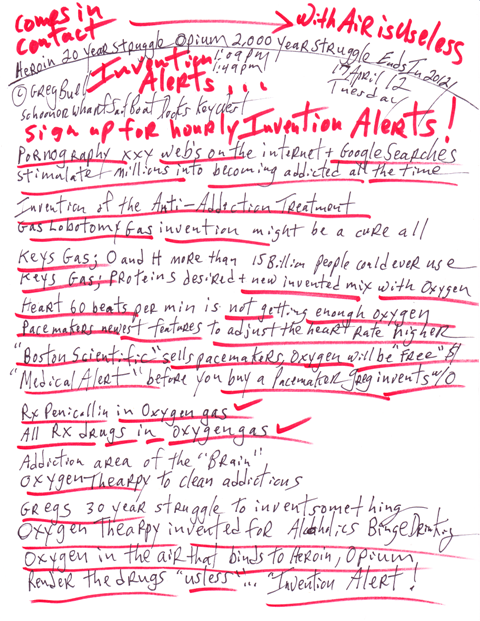 Comes in
contact
With Air is Useless
Heroin 20 year struggle Opium 2,000 year struggle Ends In 2012
1:09pm
1:49pm
17 April 12
Tuesday
© Greg Buell
Invention
Alerts...
schooner wharf sailboat docks Key West
sign up for hourly Invention Alerts!
Pornography xxx web's on the internet + Google Searches
stimulate millions into becoming addicted all the time
Invention of the Anti-Addiction Treatment
Gas Lobotomy Gas invention might be a cure all
Keys Gas; O and H more than 15 Billion people could ever use
Keys Gas; Proteins desired + new invented mix with Oxygen
Heart 60 beats per min is not getting enough oxygen
Pacemakers newest features to adjust the heart rate higher
"Boston Scientific" sells pacemakers, Oxygen will be "Free"
"Medical Alert" before you buy a Pacemaker greg invents w/O
Rx Penicillin in Oxygen gas ✓
All Rx drugs in oxygen gas ✓
Addiction area of the "Brain"
Oxygen Thearpy to clean addictions
Gregs 30 year struggle to invent something
Oxygen Thearpy invented for Alcoholics Binge Drinking
Oxygen in the air that binds to Heroin, Opium
Render the drugs "usless"... Invention Alert!